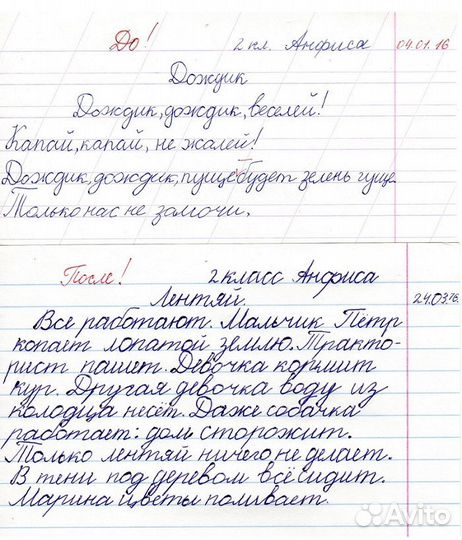 До! 2 кл. Анфиса 04.01.16
Дождик
Дождик, дождик, веселей!
Капай, капай, не жалей!
Дождик, дождик, пущебудет зелень гуще
Только нас не замочи.
После! 2 класс Анфиса
Лентяй. 24.03.16.
Все работают. Мальчик Пётр
копает лопатой землю. Тракто-
рист пашет. Девочка кормит
кур. Другая девочка воду из
колодца несёт. Даже собачка
работает: дом сторожит.
Только лентяй ничего не делает.
В тени под деревом всё сидит.
Марина цветы поливает.
Avito